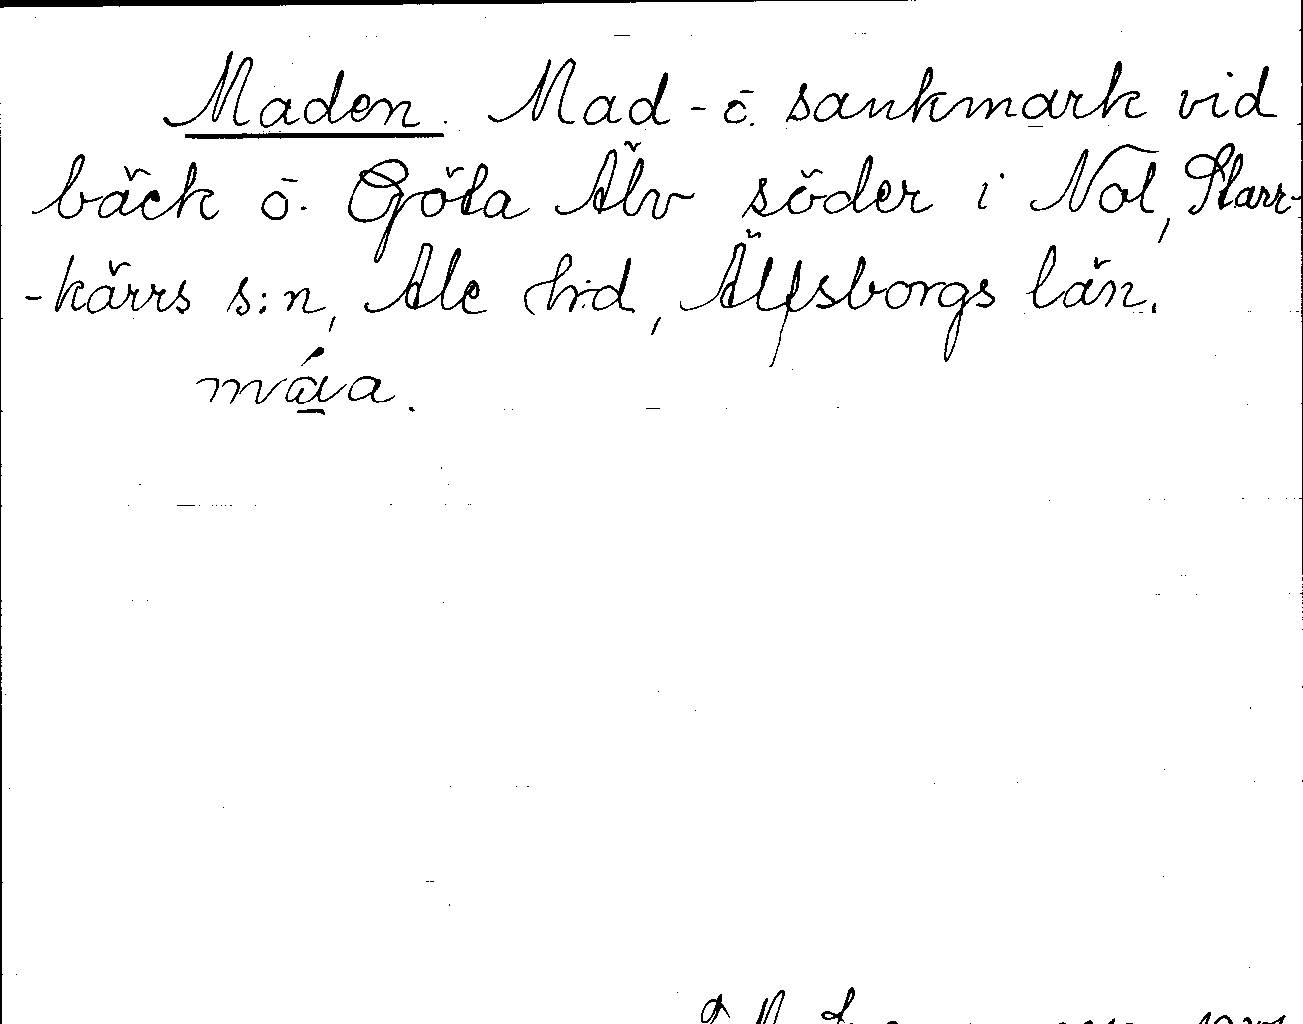 Maden. Mad- o. sankmark vid
bäck o. Göta Älv söder i Nol, Starr-
-kärrs s:n, Ale hrd, Älfsborgs län.
máa.